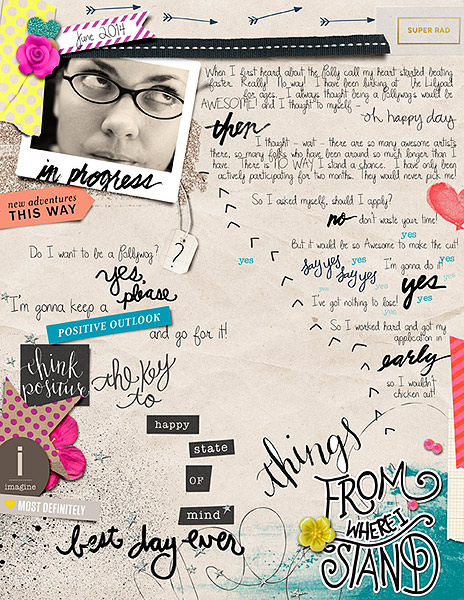 June 2014
SUPER RAD
When I first heard about the Polly call my heart started beating
faster. Really! No way! I have been lurking at The Lilypad
for ages. I always thought being a Pollywog would be
AWESOME! and I thought to myself -
oh happy day
then
I thought - wait - there are so many awesome artists
there, so many folks who have been around so much longer than I
have. There is NO WAY I stand a chance. I have only been
actively participating for two months. They would never pick me!
in progress
new adventures
THIS WAY
So I asked myself, should I apply?
no don't waste your time!
But it would be so Awesome to make the cut!
yes
yes
say yes
say yes
I'm gonna do it!
yes
yes
yes
yes
I've got nothing to lose!
yes
Do I want to be a Pollywog?
?
yes, please
I'm gonna keep a
POSITIVE OUTLOOK
and go for it!
So I worked hard and got my
application in
early
so I wouldn't
chicken out!
think
positive
the key
to
happy
state
OF
mind
i
imagine
MOST DEFINITELY
best day ever
things
FROM
WHERE I
STAND